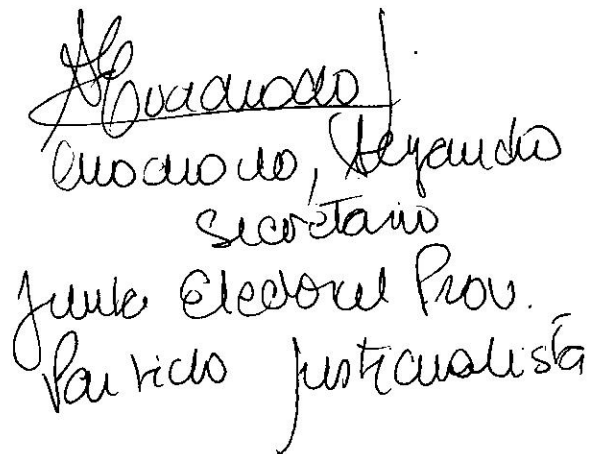 Alejandro
Secretario
Junta Electoral Prov.
Partido Justicialista